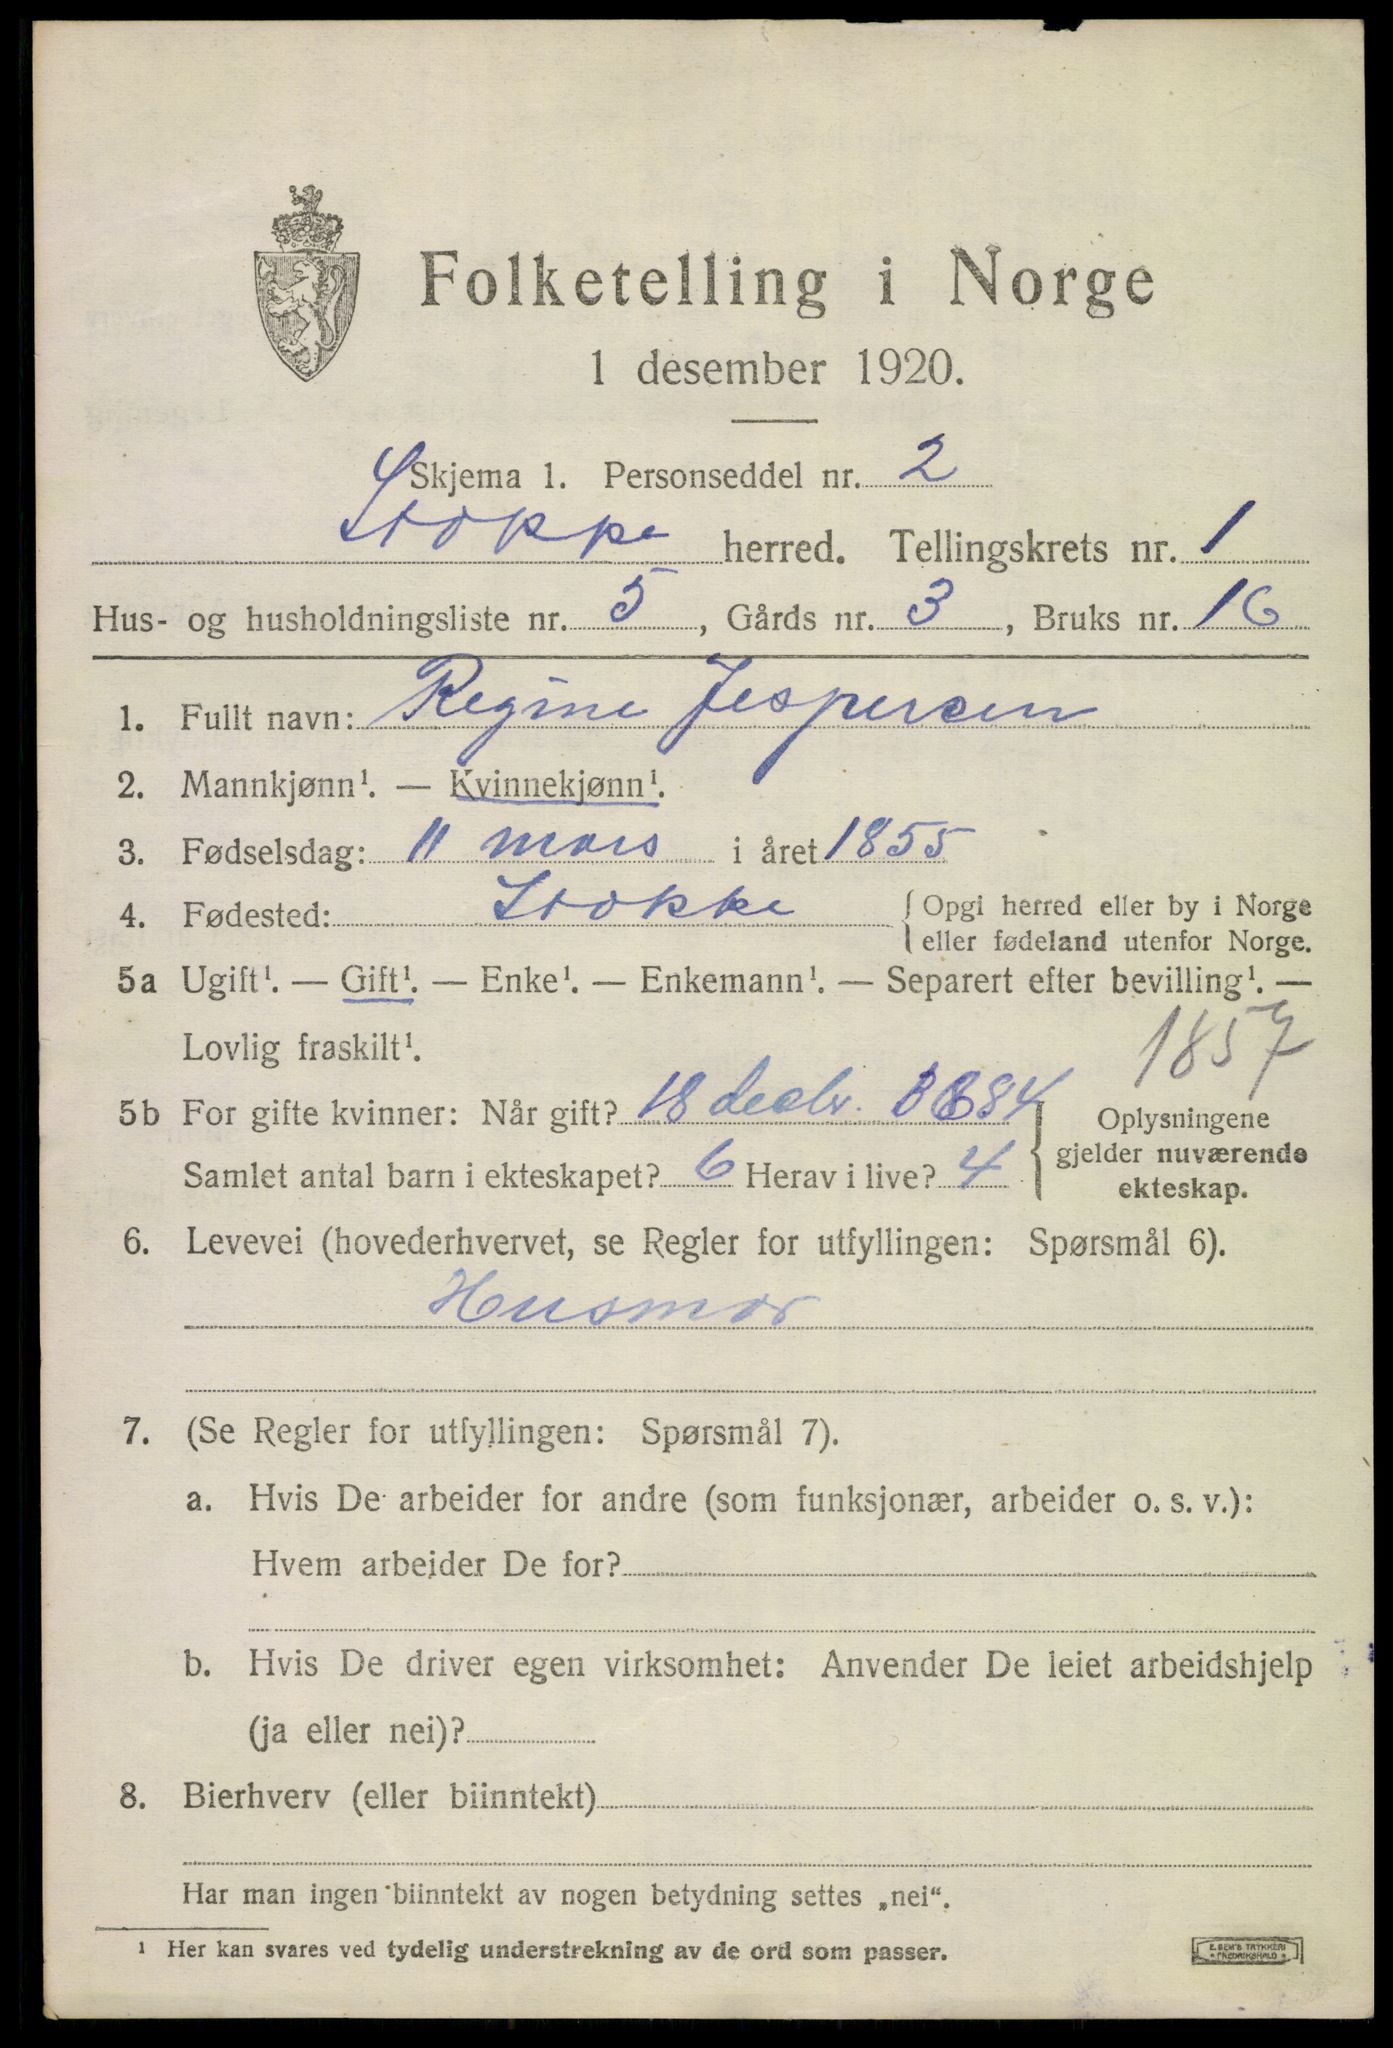 Folketelling i Norge
1 desember 1920.
Skjema 1. Personseddel nr. 2
Stokke herred. Tellingskrets nr. 1
Hus- og husholdningsliste nr. 5, Gårds nr. 3, Bruks nr. 16
1. Fullt navn: Regine Jespersen
2. Mannkjønn¹. — Kvinnekjønn¹.
3. Fødselsdag: 11 mars i året 1855
4. Fødested: Stokke {Opgi herred eller by i Norge
eller fødeland utenfor Norge.
5a Ugift¹. — Gift¹. — Enke¹. — Enkemann¹. — Separert efter bevilling¹. —
Lovlig fraskilt¹.
1857
5b For gifte kvinner: Når gift? 18 decbr. 84
Samlet antal barn i ekteskapet? 6 Herav i live? 4
Oplysningene
gjelder nuværende
ekteskap.
6. Levevei (hovederhvervet, se Regler for utfyllingen: Spørsmål 6).
Husmor
7. (Se Regler for utfyllingen: Spørsmål 7).
a. Hvis De arbeider for andre (som funksjonær, arbeider o. s. v.):
Hvem arbeider De for?
b. Hvis De driver egen virksomhet: Anvender De leiet arbeidshjelp
(ja eller nei)?
8. Bierhverv (eller biinntekt)
Har man ingen biinntekt av nogen betydning settes „nei“.
¹ Her kan svares ved tydelig understrekning av de ord som passer.
E. SEM'S TRYKKERI
FREDRIKSHALD